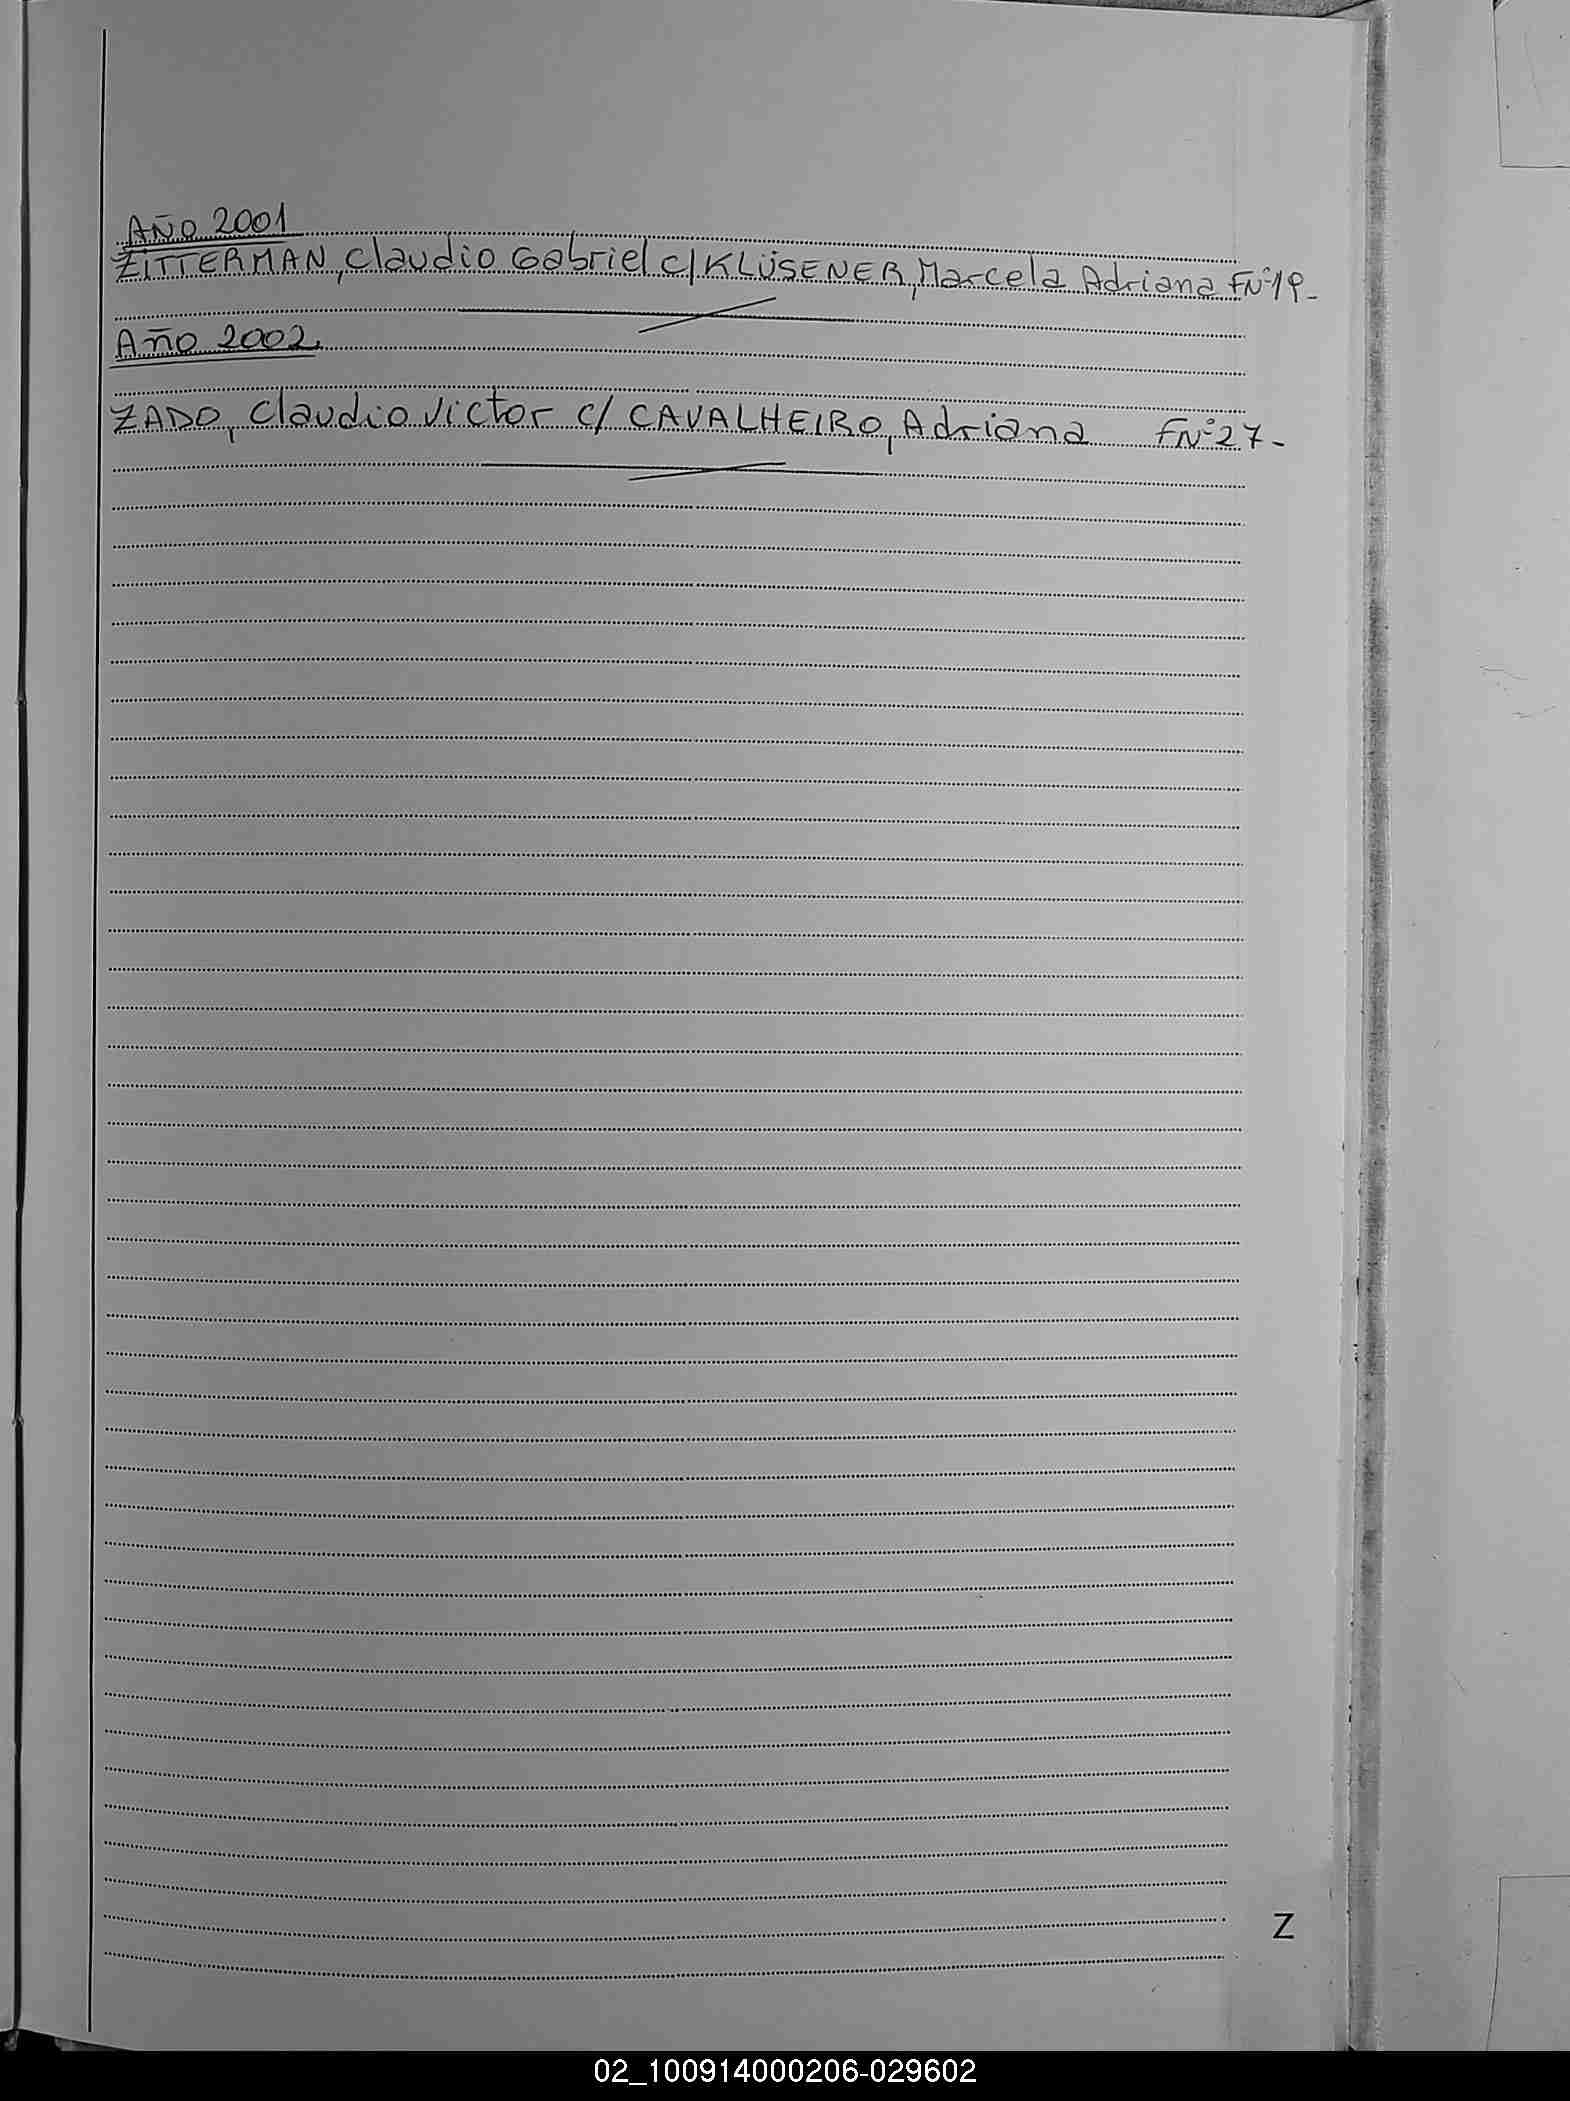 AÑO 2001
ZITTERMAN, Claudio Gabriel C/ KLÜSENER, Marcela Adriana FNº19-
Año 2002.
ZADO, Claudio Victor C/ CAVALHEIRO, Adriana FNº27-
Z
02_100914000206-029602